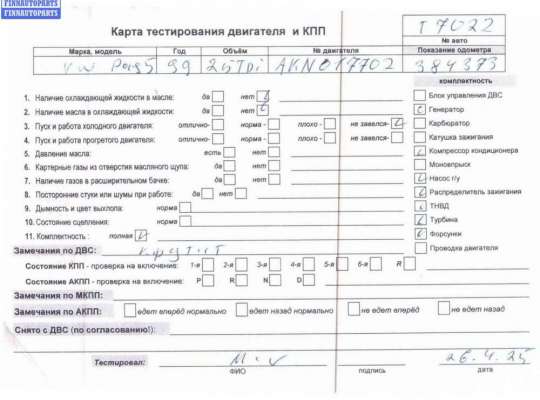 FINNAUTOPARTS
FINNAUTOPARTS
Карта тестирования двигателя и КПП
T 7022
№ авто
Марка, модель Год Объём № двигателя Показание одометра
VW Pas5 99 2.5TDi AKN017702 384373
комплектность
1. Наличие охлаждающей жидкости в масле: да нет
Блок управления ДВС
2. Наличие масла в охлаждающей жидкости: да нет
Генератор
3. Пуск и работа холодного двигателя: отлично- норма - плохо - не завелся-
Карбюратор
4. Пуск и работа прогретого двигателя: отлично- норма - плохо - не завелся-
Катушка зажигания
5. Давление масла: есть нет
Компрессор кондиционера
6. Картерные газы из отверстия масляного щупа: да нет
Моновпрыск
7. Наличие газов в расширительном бачке: да нет
Насос г/у
8. Посторонние стуки или шумы при работе: да нет
Распределитель зажигания
9. Дымность и цвет выхлопа: норма
ТНВД
10. Состояние сцепления: норма
Турбина
11. Комплектность : полная
Форсунки
Замечания по ДВС: крутит
Проводка двигателя
Состояние КПП - проверка на включение: 1-я 2-я 3-я 4-я 5-я 6-я R
Состояние АКПП - проверка на включение: P R N D
Замечания по МКПП:
Замечания по АКПП: едет вперёд нормально едет назад нормально не едет вперёд не едет назад
Снято с ДВС (по согласованию!):
Тестировал: 26.4.25
ФИО подпись дата